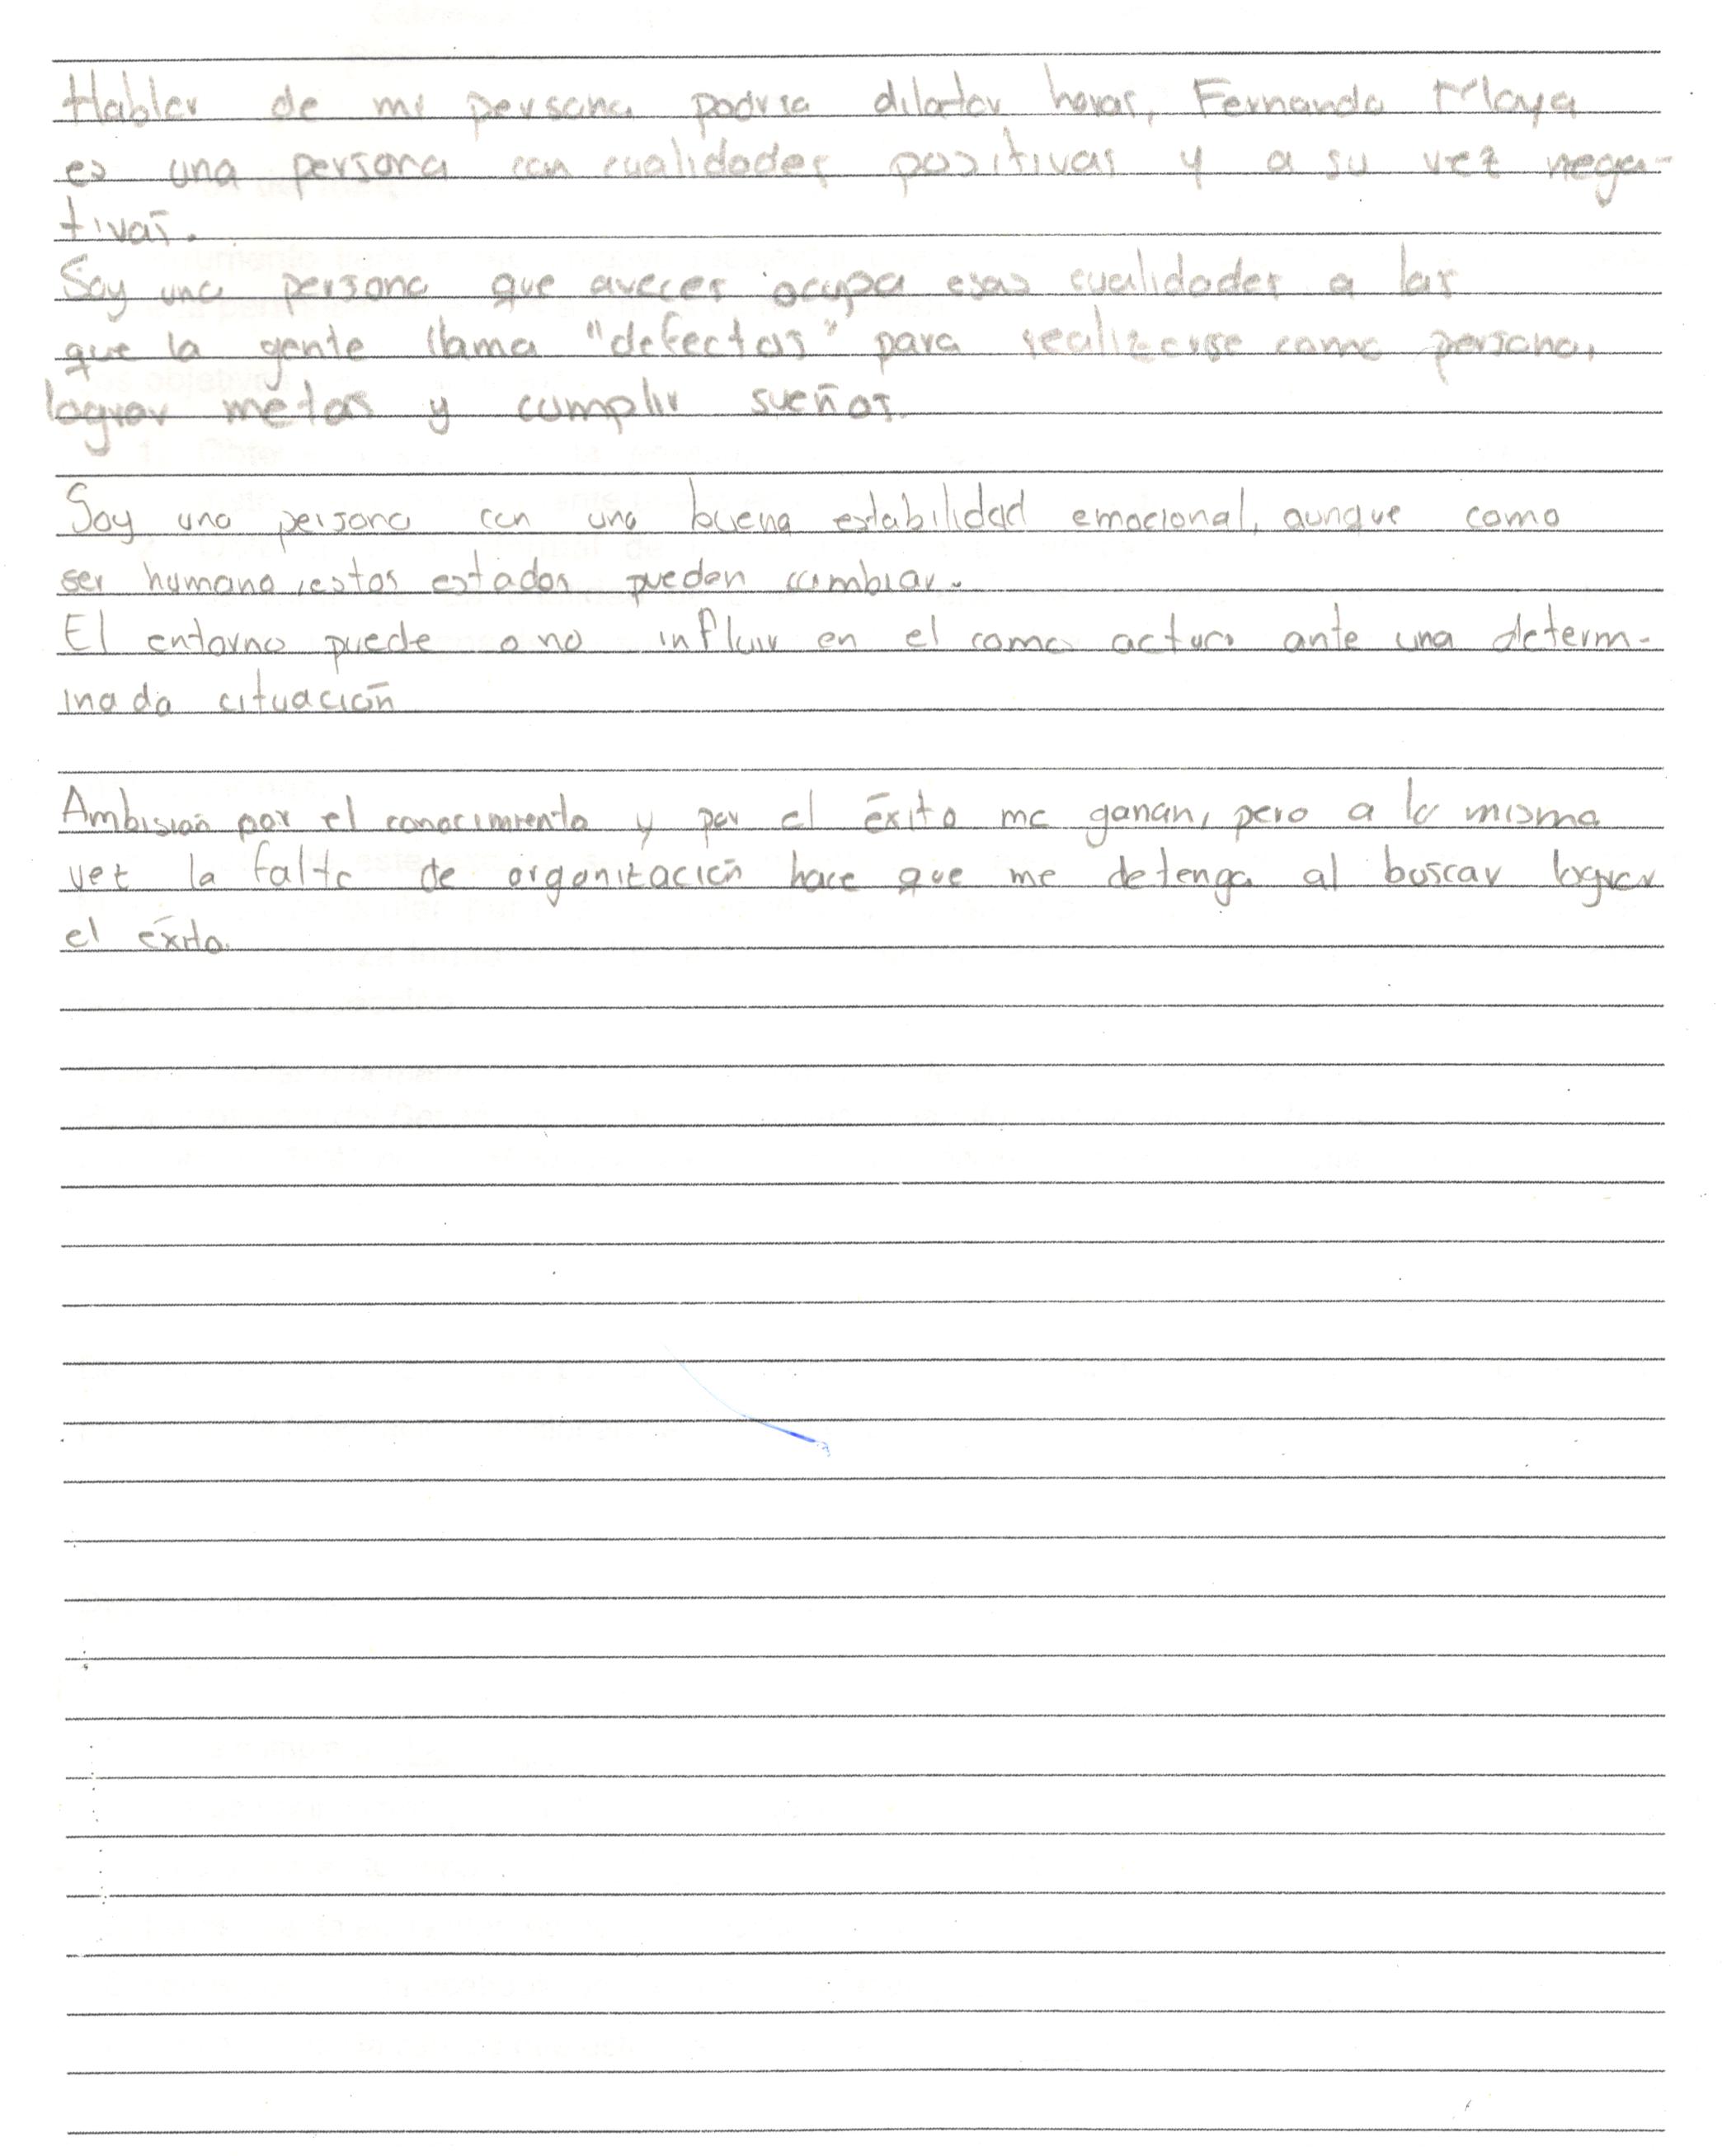 Hablar de mi persona podria dilatar horas, Fernando Maya
es una persona con cualidades positivas y a su vez nega-
tivas.
Soy una persona que aveces ocupa esas cualidades a las
que la gente llama "defectos" para realizarse como persona,
lograr metas y cumplir sueños.
Soy una persona con una buena estabilidad emocional, aunque como
ser humano, estos estados pueden cambiar.
El entorno puede o no influir en el como actuo ante una determ-
inada cituación
Ambisión por el conocimiento y por el éxito me ganan, pero a la misma
vez la falta de organización hace que me detenga al buscar lograr
el éxito.